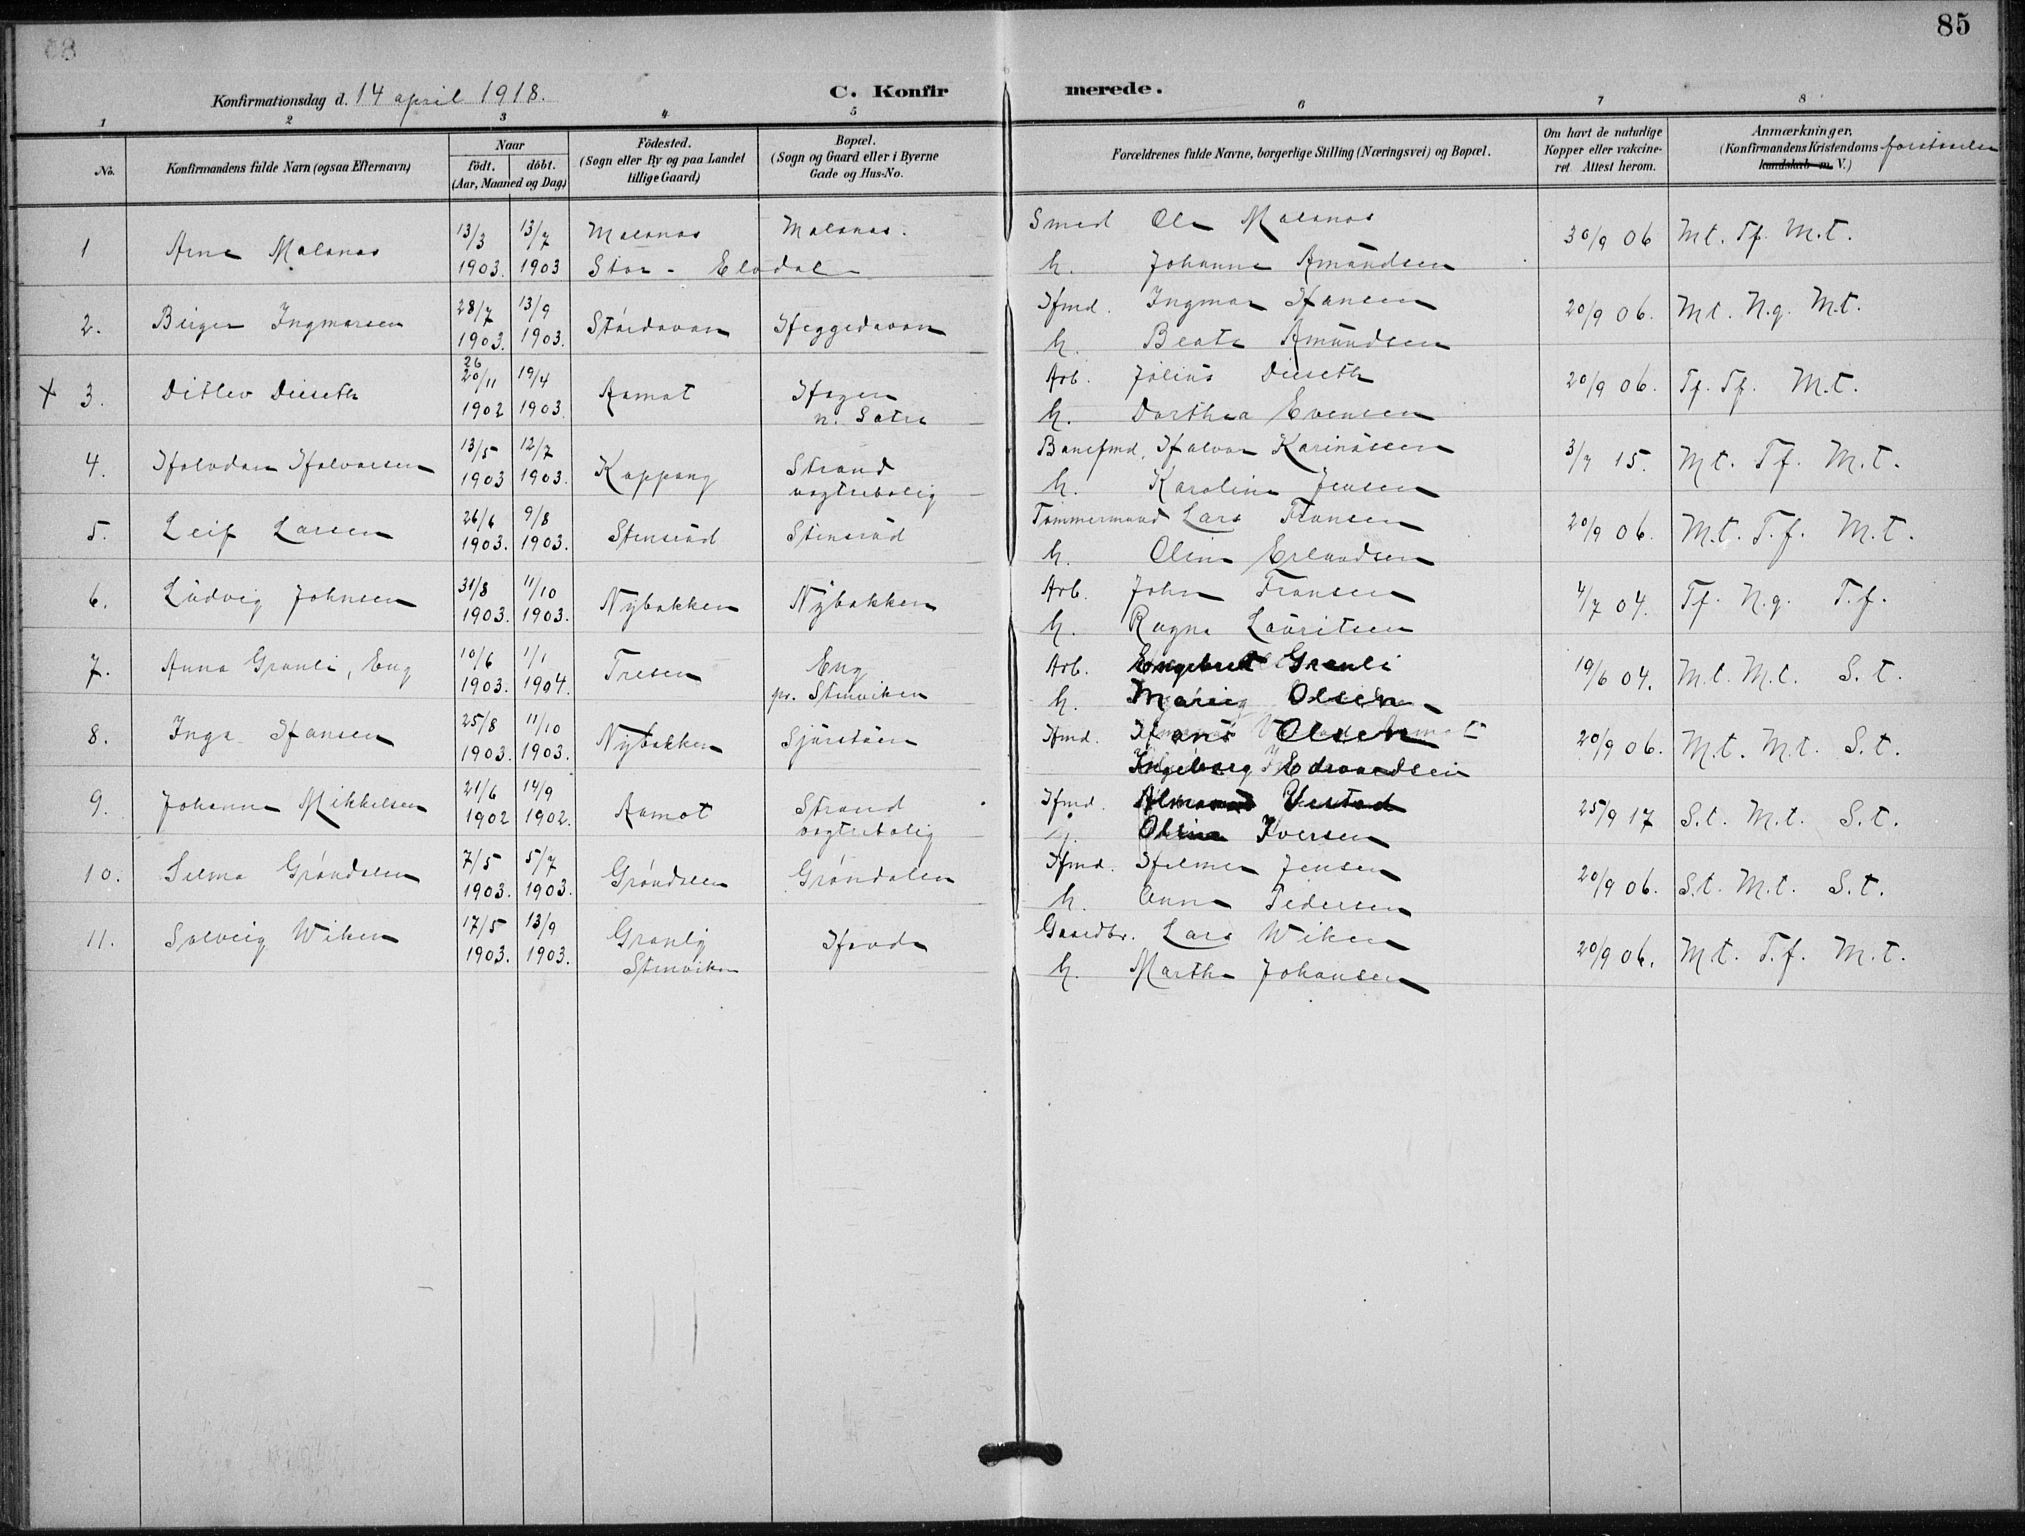 85
Konfirmationsdag d. 14 april 1918.
C. Konfirmerede.
1 2 3 4 5 6 7 8
No. Konfirmandens fulde Navn (ogsaa Efternavn)
Naar
födt. döbt.
(Aar, Maaned og Dag)
Födested.
(Sogn eller By og paa Landet
tillige Gaard)
Bopæl.
(Sogn og Gaard eller i Byerne
Gade og Hus-No.
Forældrenes fulde Navne, borgerlige Stilling (Næringsvei) og Bopæl.
Om havt de naturlige
Kopper eller vakcine-
ret Attest herom.
Anmærkninger,
(Konfirmandens Kristendoms
kundskab m. V.)
1 Arne Malanas 13/3 1903. 13/7 1903 Malanas Malanas.
Stor-Elvdal
Smed Ole Malanas
h. Johanne Amundsen
30/9 06 Mt. Tf. M.t.
2. Birger Ingmarsen 28/7 1903. 13/9 1903. Heggedavan
Hmd. Ingmar Hansen
h. Beate Amundsen
20/9 06. Mt. N.g. Mt.
+ 3. Ditlev Dieseth 26 20/11 1902 19/4 1903. Aamot Hagen
n. Sätre
Arb. Julius Dieseth
h. Dorthea Evensen
20/9 06. Tf. Tf. M.t.
4. Halvdan Halvorsen 13/5 1903 12/7 1903. Koppang Strand
vogterbolig
Banefmd. Halvor Karinussen
h. Karoline Jensen
3/7 15. Mt. Tf. M.t.
5. Leif Larsen 26/6 1903. 9/8 1903. Stensröd Stensröd
Tömmermand Lars Fransen
h. Oline Erlandsen
20/9 06. M.t. T.f. M.t.
6. Ludvig Johnsen 31/8 1903. 11/10 1903. Nybakken Nybakken
Arb. John Fransen
h. Ragna Lauritsen
4/7 04. Tf. N.g. T.f.
7. Anna Granli, Eng 10/6 1903. 1/1 1904. Tresen Eng
pr. Stenviken
Arb. Engebret Granli
h. Marie Olsen
19/6 04. M.t. M.t. S.t.
8. Inga Hansen 25/8 1903. 11/10 1903. Nybakken
Hmd. Hans Olsen
Ingeborg Edvardsen
20/9 06. M.t. M.t. S.t.
9. Johanne Mikkelsen 21/6 1902 14/9 1902. Aamot Strand
vogterbolig
Hmd. Vestad
Oline Iversen
25/9 17 S.t. M.t. S.t.
10. Selma Gröndalen 7/5 1903. 5/7 1903. Gröndalen Gröndalen
Hmd. Hilmer Jensen
h. Anne Pedersen
20/9 06. S.t. M.t. S.t.
11. Solveig Wiken 17/5 1903. 13/9 1903. Granly
Stenviken
Gaardbr. Lars Wiken
h. Marthe Johansen
20/9 06. Mt. T.f. M.t.